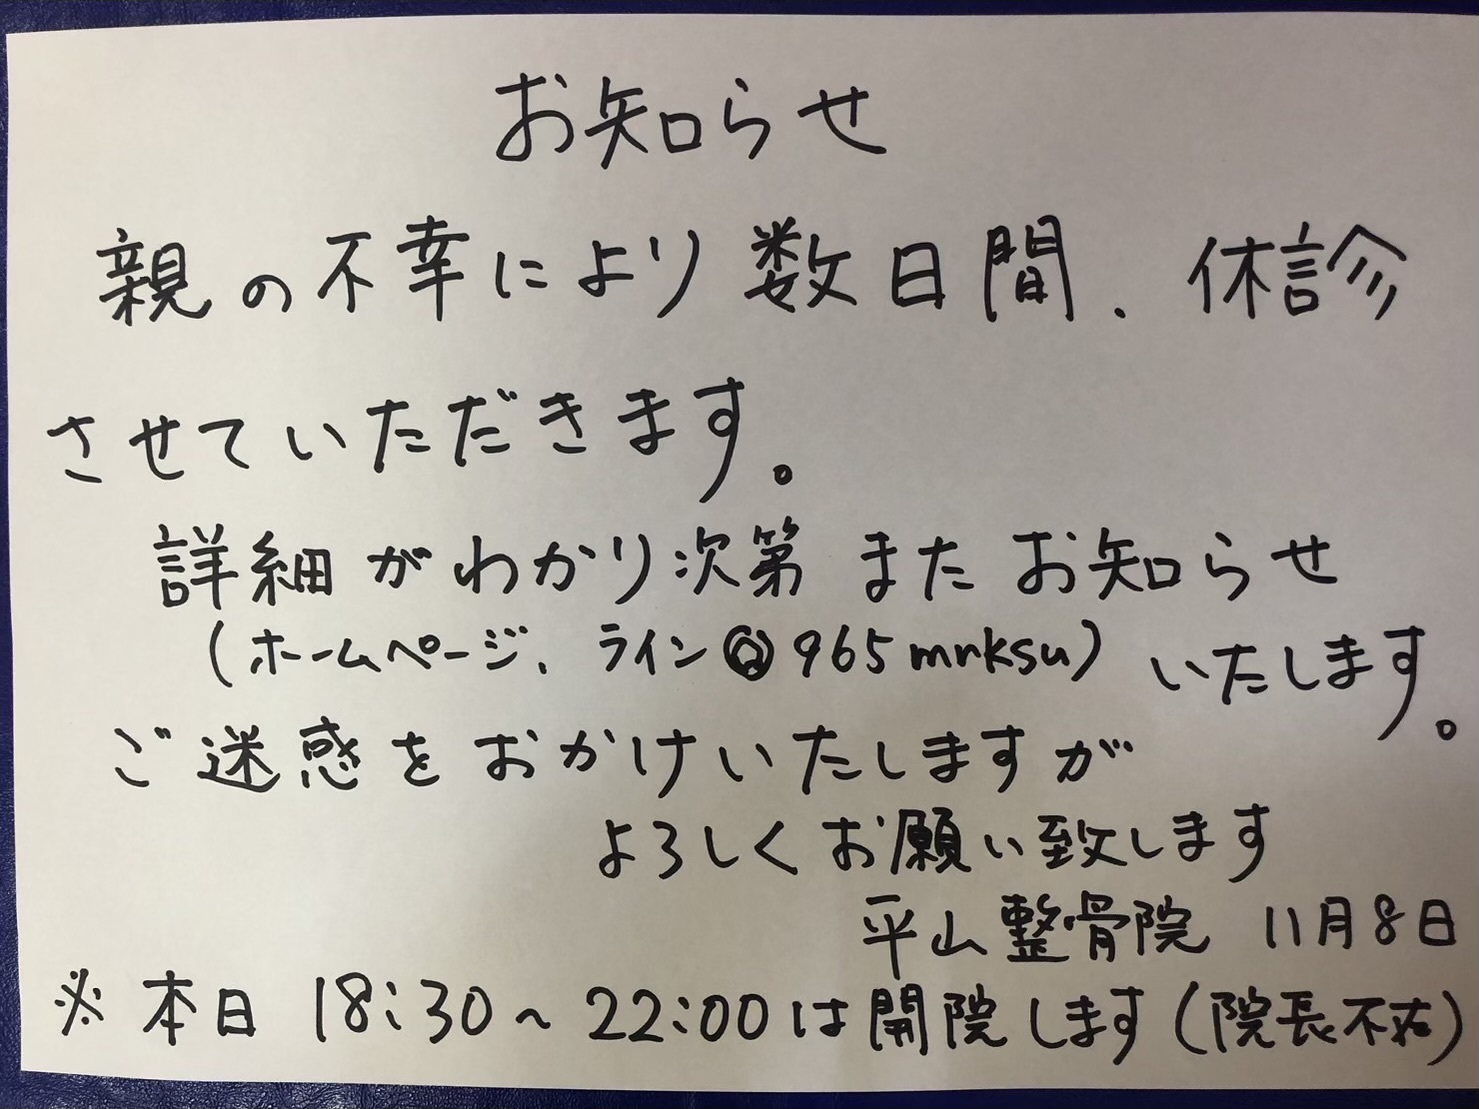 お知らせ
親の不幸により数日間、休診
させていただきます。
詳細がわかり次第 また お知らせ
(ホームページ、ライン@965mnksu) いたします。
ご迷惑をおかけいたしますが
よろしくお願い致します
平山整骨院 11月8日
※本日 18:30~22:00は開院します(院長不在)